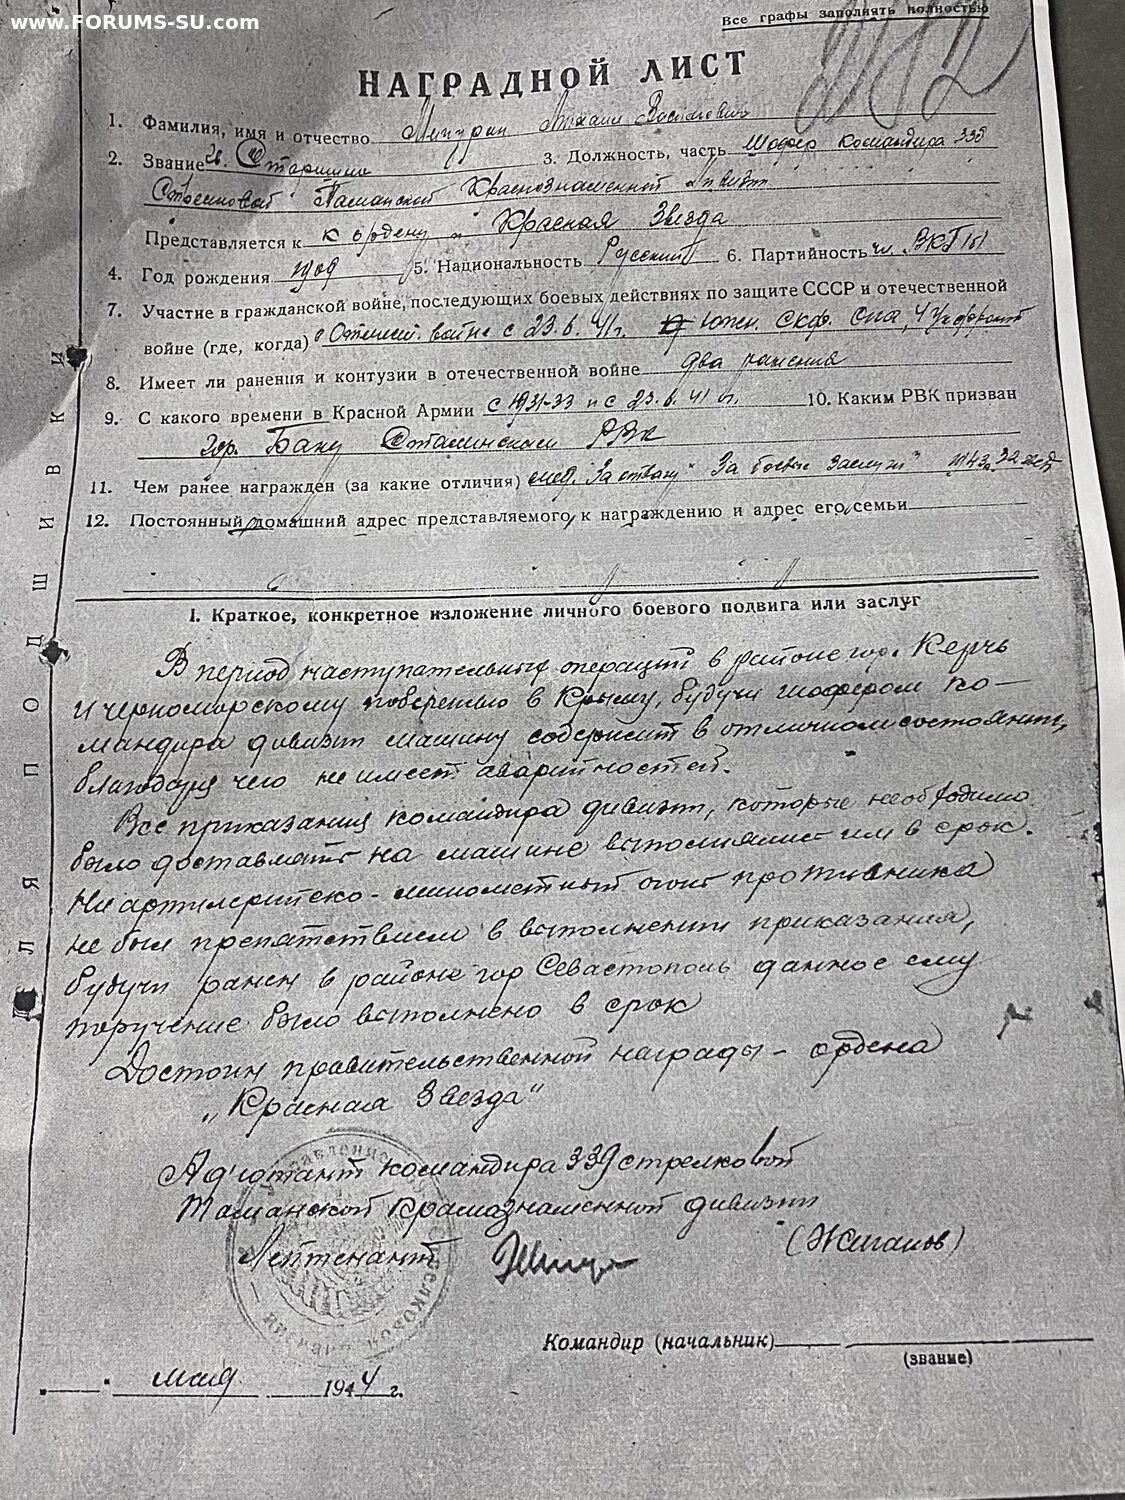 www.FORUMS-SU.com
Все графы заполнять полностью
НАГРАДНОЙ ЛИСТ
1. Фамилия, имя и отчество Мичурин Михаил Васильевич
2. Звание Старшина 3. Должность, часть Шофер командира 339
Стрелковой Таманской Краснознаменной дивизии
Представляется к к ордену Красная Звезда
4. Год рождения 1909 5. Национальность Русский 6. Партийность чл. ВКП(б)
7. Участие в гражданской войне, последующих боевых действиях по защите СССР и отечественной
войне (где, когда) в Отечеств. войне с 23.6.41г. Южн. Скф. 4 Укр фронт
8. Имеет ли ранения и контузии в отечественной войне два ранения
9. С какого времени в Красной Армии с 1931-33 и с 23.6.41 г. 10. Каким РВК призван
гор. Баку Сталинским РВК
11. Чем ранее награжден (за какие отличия) мед. "За отвагу" "За боевые заслуги"
12. Постоянный домашний адрес представляемого к награждению и адрес его семьи
I. Краткое, конкретное изложение личного боевого подвига или заслуг
В период наступательных операций в районе гор. Керчь
и черноморскому побережью в Крыму, будучи шофером ко-
мандира дивизии машину содержит в отличном состоянии,
благодаря чего не имеет аварийностей.
Все приказания командира дивизии, которые необходимо
было доставлять на машине выполнялись им в срок.
Ни артилерийско-минометный огонь противника
не был препятствием в выполнении приказания,
будучи ранен в районе гор Севастополь данное ему
поручение было выполнено в срок
Достоин правительственной награды - ордена
„Красная Звезда"
Адъютант командира 339 стрелковой
Таманской Краснознаменной дивизии
Лейтенант (Жиганов)
Командир (начальник)
(звание)
"    " мая 1944 г.
ДЛЯ ПОДШИВКИ